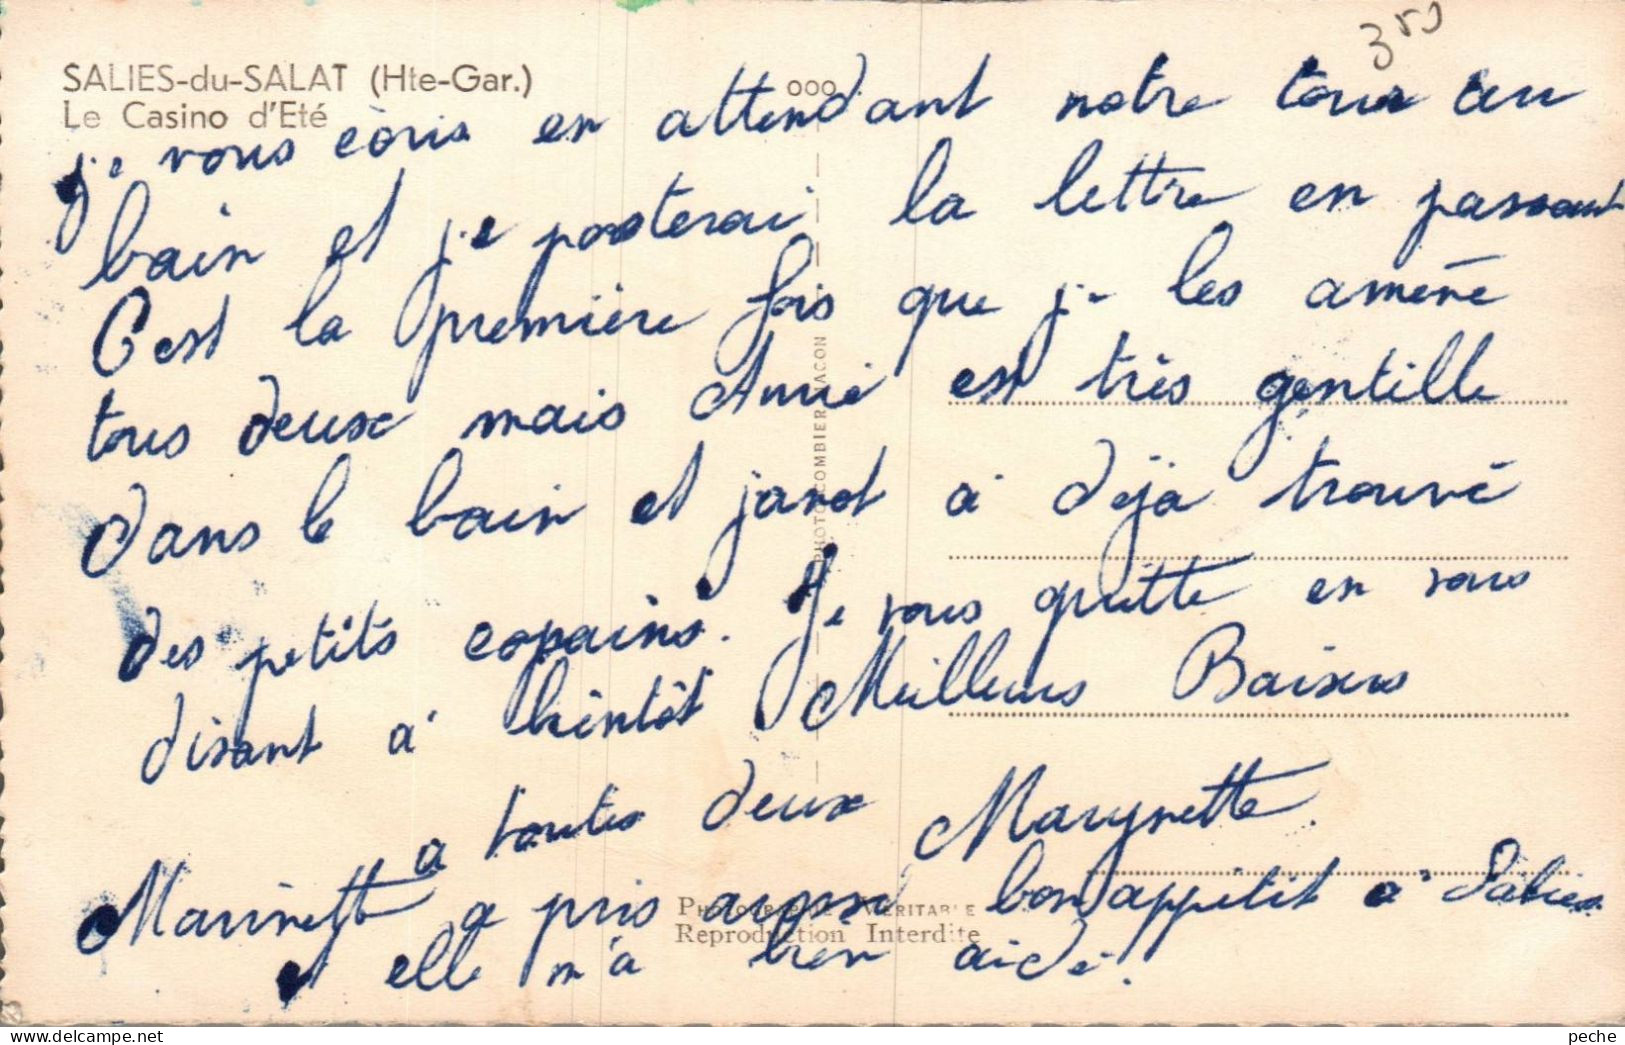 350
SALIES-du-SALAT (Hte-Gar.)
Le Casino d'Eté
ooo
je vous écris en attendant notre tour au
bain et je posterai la lettre en passant
C'est la première fois que je les amène
tous deux mais Annie est très gentille
dans le bain et janot a déjà trouvé
des petits copains. Je vous quitte en vous
disant à bientôt Meilleurs Baisers
a toutes deux Marynette.
Marinette a pris aussi bon appétit a à Salies
et elle m'a bien aidé.
PHOTO COMBIER MACON
PHOTOGRAPHIE VERITABLE
Reproduction Interdite
peche